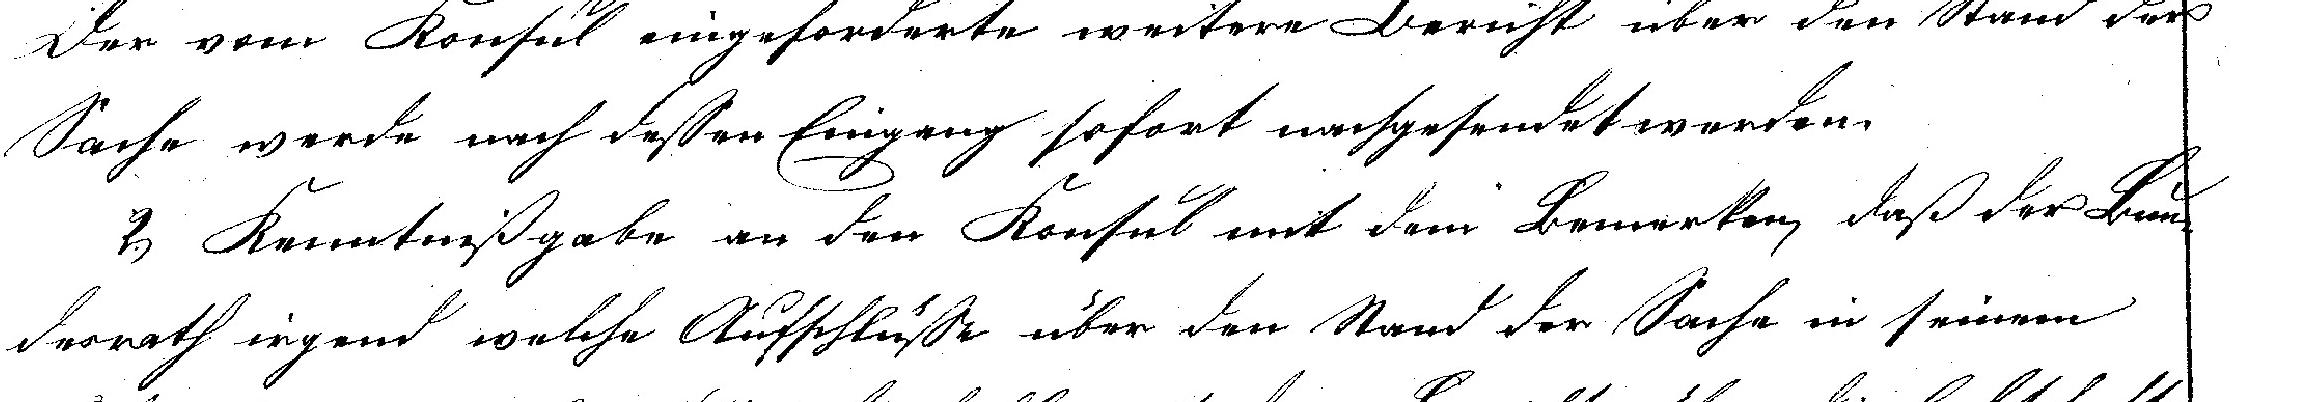 Der vom Konsul eingeforderte weitere Bericht über den Stand der
Sache werde nach dessen Eingang sofort nachgesendet werden.
2) Kenntnißgabe an den Konsul mit dem Bemerken, daß der Bun-
desrath irgend welche Aufschlüsse über den Stand der Sache in seinem